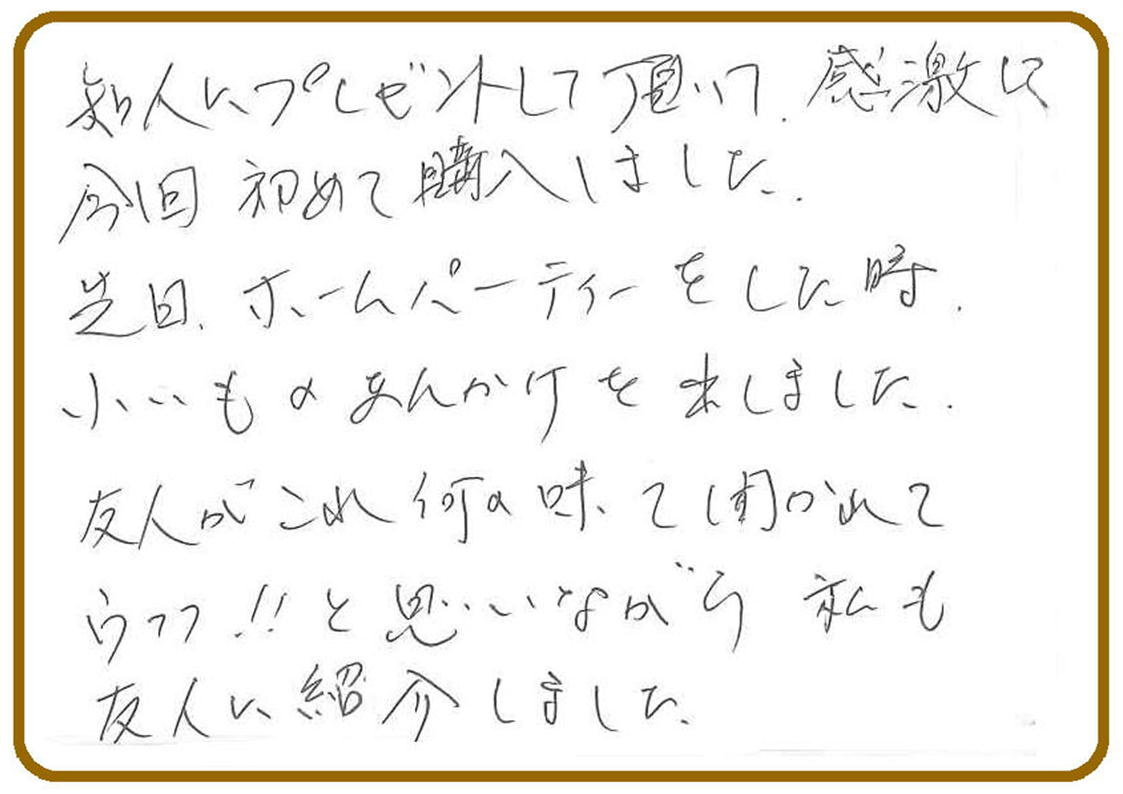 知人にプレゼントして頂いて、感激して
今回初めて購入しました。
先日、ホームパーティーをした時、
小いものあんかけを出しました。
友人がこれ何の味、って聞かれて
ウフフ!!と思いいながら私も
友人に紹介しました。